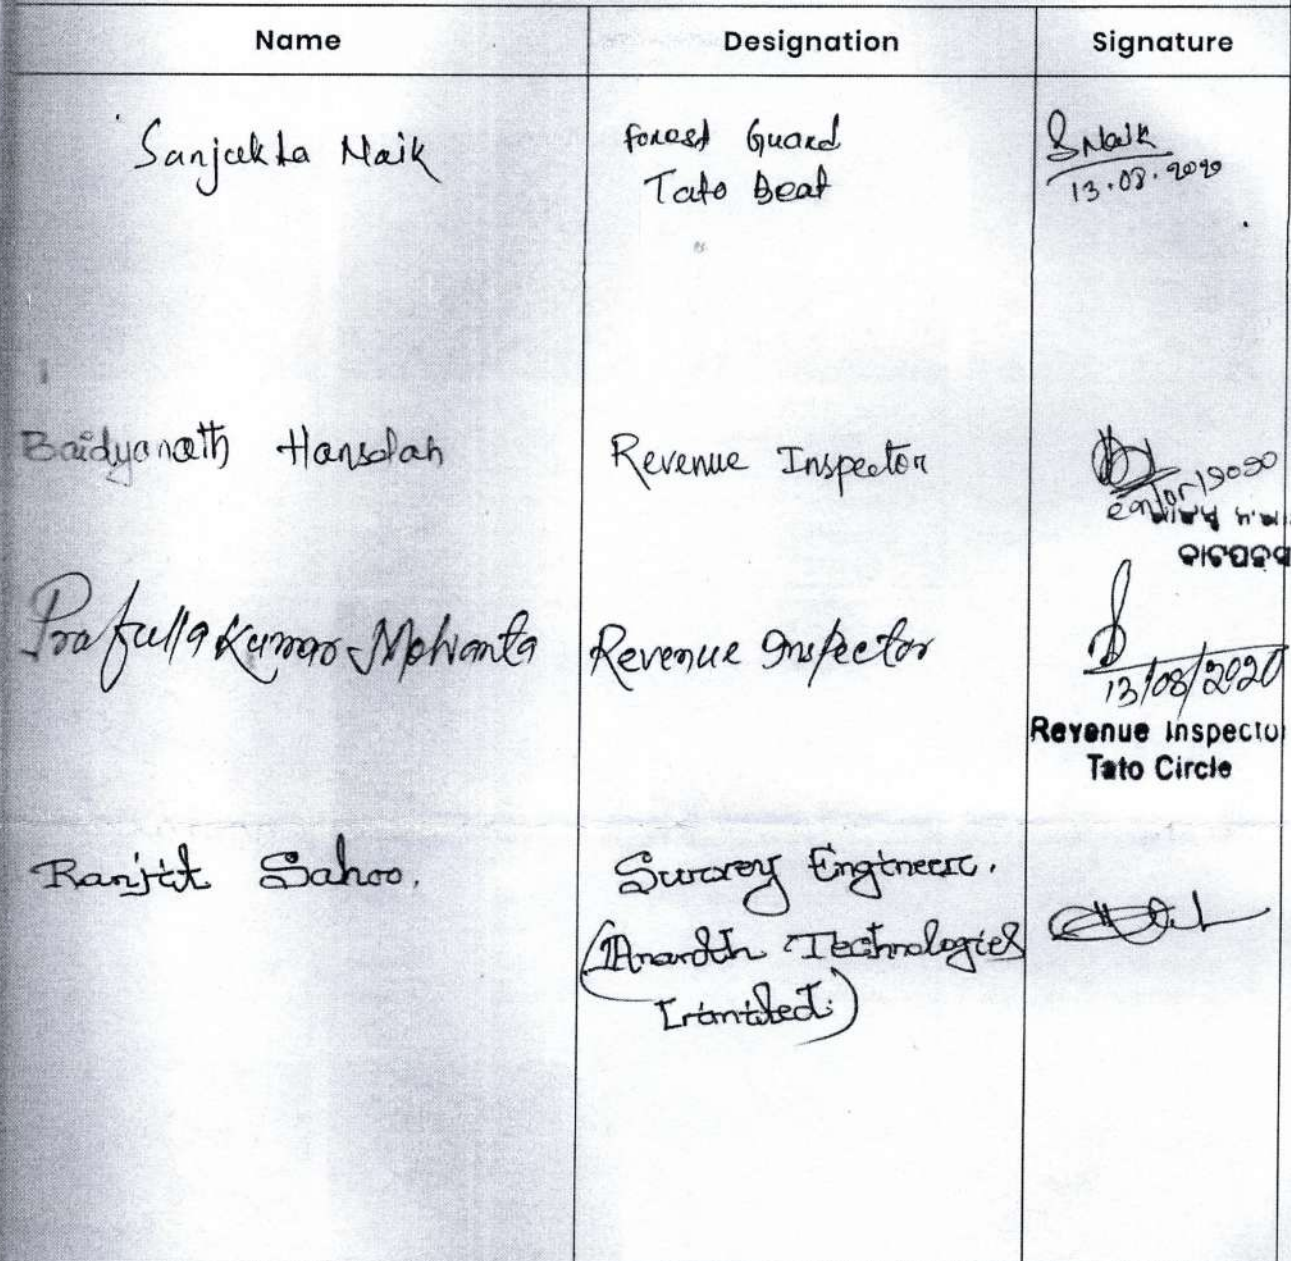 Name Designation Signature
Sanjukta Naik Forest Guard S Naik
Tato Beat 13.08.2020
Baidyanath Hansdah Revenue Inspector
Prafulla Kumar Mohanta Revenue Inspector
13/08/2020
Revenue Inspector
Tato Circle
Ranjit Sahoo. Survey Engineer.
(Ananth Technologies
Limited.)